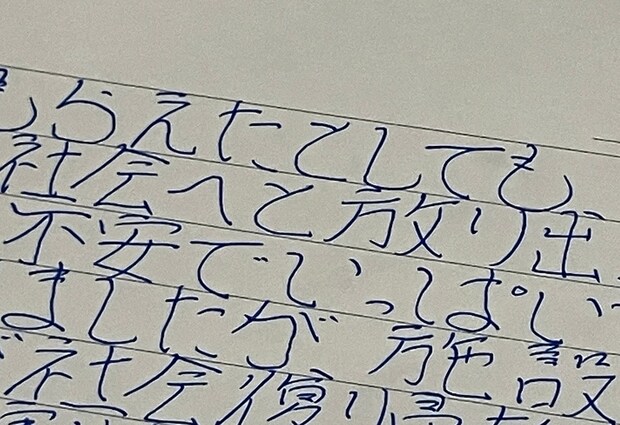 もらえたとしても、
社会へと放り出
不安でいっぱい
ましたが 施設
社会復り